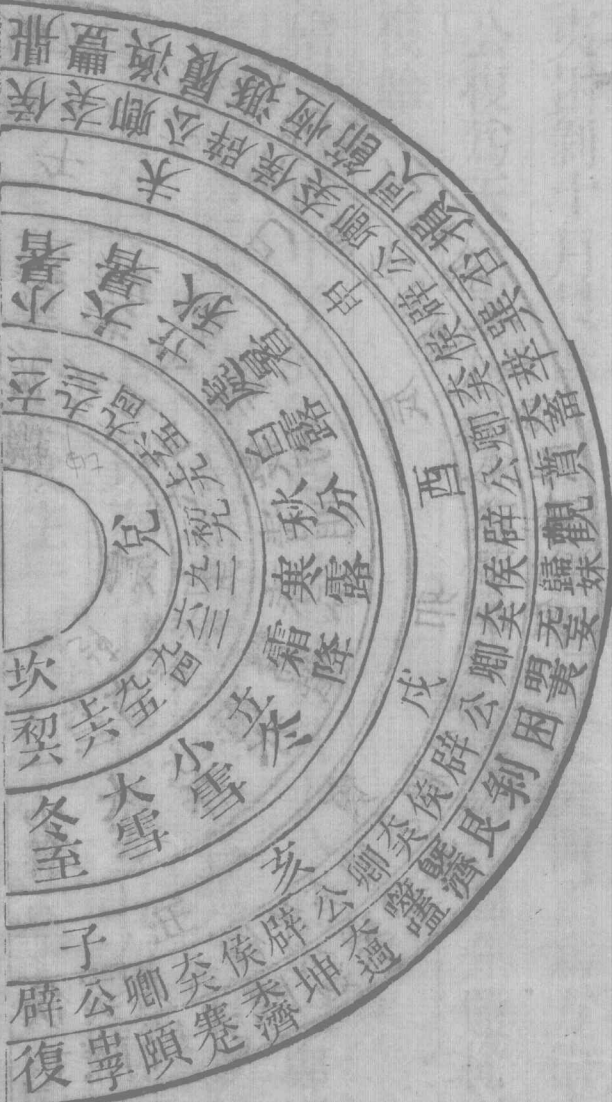 鼎 豐 渙 履 遯 恆 節 同人 損 否 巽 萃 大畜 賁 觀 歸妹 无妄 明夷 困 剝 艮 既濟 噬嗑 大過 坤 未濟 蹇 頤 中孚 復
侯 大夫 卿 公 辟 侯 大夫 卿 公 辟 侯 大夫 卿 公 辟 侯 大夫 卿 公 辟 侯 大夫 卿 公 辟 侯 大夫 卿 公 辟
未 申 酉 戌 亥 子
小暑 大暑 立秋 處暑 白露 秋分 寒露 霜降 立冬 小雪 大雪 冬至
六二 九三 九四 六五 上九 初九 九二 六三 九四 九五 上六 初六
兌 坎